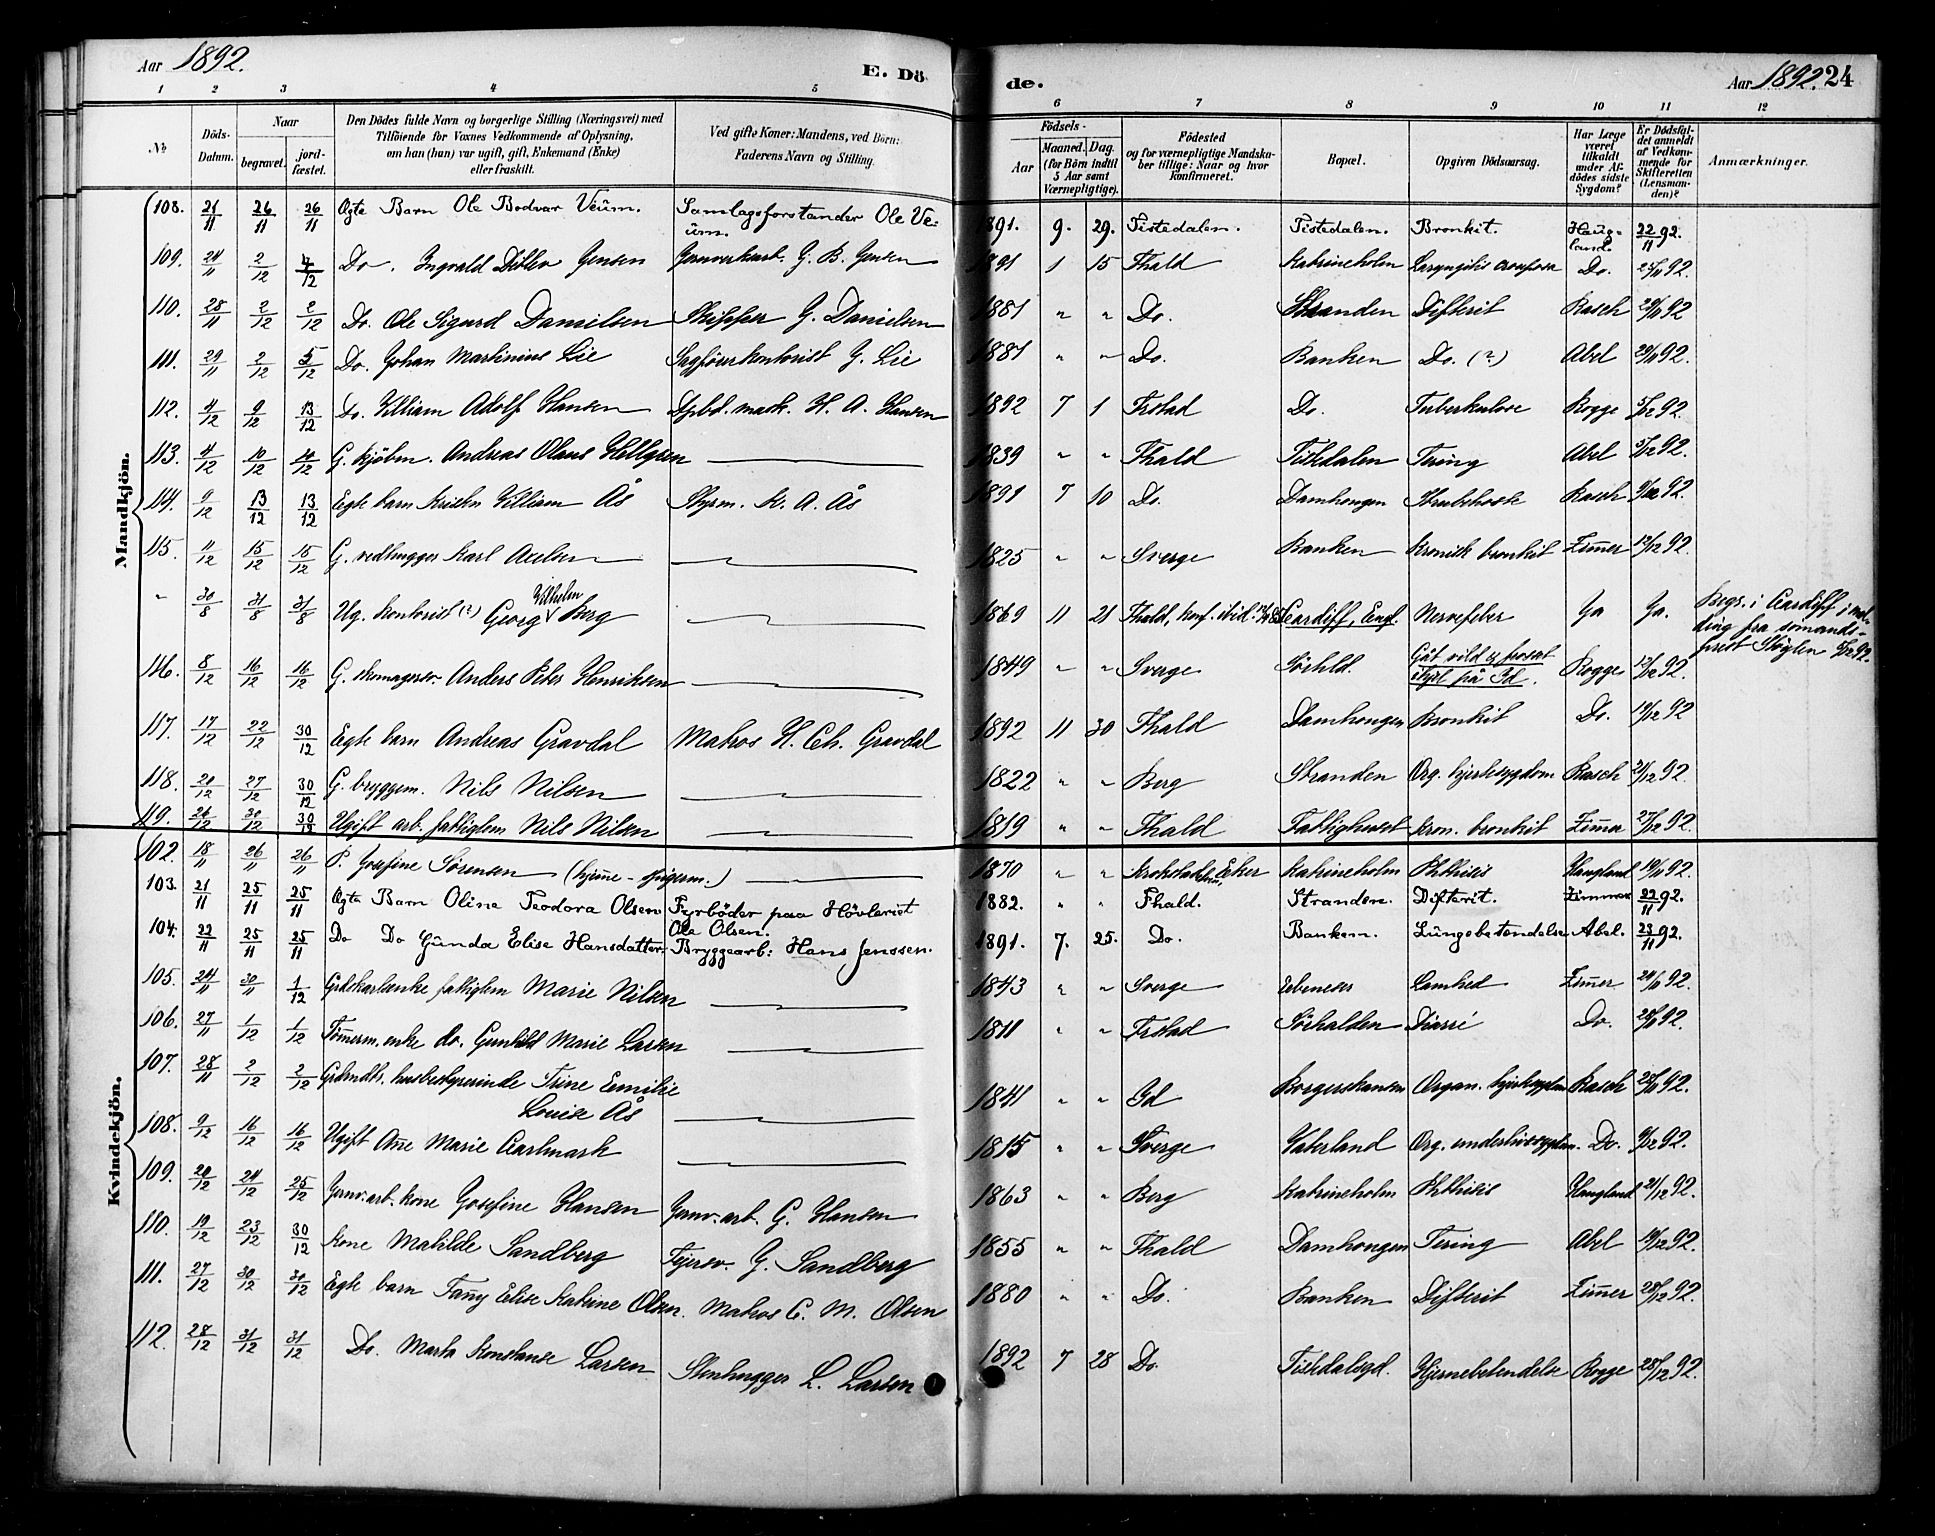 Aar 1892. E. Dö- de. Aar 1892. 24
1 2 3 4 5 6 7 8 9 10 11 12
No Döds-Datum. Naar begravet. jord-fæstet. Den Dödes fulde Navn og borgerlige Stilling (Næringsvei) med Tilföiende for Voxnes Vedkommende af Oplysning, om han (hun) var ugift, gift, Enkemand (Enke) eller fraskilt. Ved gifte Koner: Mandens, ved Börn: Faderens Navn og Stilling. Födsels- Aar Maaned. Dag. (for Börn indtil 5 Aar samt Værnepligtige). Födested og for værnepligtige Mandskaber tillige: Naar og hvor konfirmeret. Bopæl. Opgiven Dödsaarsag. Har Læge været tilkaldt under Afdödes sidste Sygdom? Er Dödsfaldet anmeldt af Vedkommende for Skifteretten (Lensmanden)? Anmærkninger.
Mandkjön.
108. 21/11 26/11 26/11 Ægte Barn Ole Bodvar Veüm. Samlagsforstander Ole Veüm. 1891. 9. 29. Tistedalen. Tistedalen. Bronkit. Haugland. 22/11 92.
109. 24/11 2/12 4/12 Do. Ingvald Ditlev Jensen Jernverkarb. G. B. Jensen 1891 1 15 Fhald Katrineholm Laryngitis crouposa Do. 25/11 92.
110. 28/11 2/12 2/12 Do. Ole Sigurd Danielsen Skipper G. Danielsen 1881 " " Do. Stranden Difterit Rasch 29/11 92
111. 29/11 2/12 5/12 Do. Johan Martinius Lie Sagförerkontorist G. Lie 1881 " " Do. Banken Do. (?) Abel 29/11 92.
112. 4/12 9/12 13/12 Do. William Adolf Hansen Dpbd. mask. H. A. Hansen 1892 7 1 Frstad Do. Tuberkulose Rogge 5/12 92.
113. 4/12 10/12 14/12 G. kjöbm. Andreas Olaus Hellgren 1839 " " Fhald Tistedalen Tæring Abel 5/12 92.
114. 9/12 13/12 13/12 Egte barn Kristen William Ås Styrm. K. A. Ås 1891 7 10 Do. Damhougen Strubehoste Rasch 9/12 92.
115. 11/12 15/12 15/12 G. vedhugger Karl Axelsen 1825 " " Sverge Banken Kronisk bronkit Zimmer 12/12 92.
" 30/8 31/8 31/8 Ug. kontorist (?) Georg Vilhelm Berg 1869 11 21 Fhald, konf. ibid. Cardiff, Engl. Nervefeber Ja Ja. Begr. i Cardiff i melding fra sömandsprest
116. 8/12 16/12 16/12 G. skomagersv. Anders Peter Henriksen 1849 " " Sverge Sörhld. Gåt vild og frosset ihjel på Id. Rogge 12/12 92.
117. 17/12 22/12 30/12 Egte barn Andreas Gravdal Matros H. Ch. Gravdal 1892 11 30 Fhald Damhougen Bronkit Do. 19/12 92
118. 20/12 27/12 30/12 G. bryggem. Nils Nilsen 1822 " " Berg Stranden Org. hjertesygdom Rasch 21/12 92.
119. 24/12 30/12 30/12 Ugift arb. fattiglem Nils Nilsen 1819 " " Fhald Fattighuset Kron. bronkit Zimmer 27/12 92.
Kvindekjön.
102. 18/11 26/11 26/11 P. Josefine Sörensen (hjemme - ) 1870 " " Krokstad Eker Katrineholm Phthisis Haugland 19/11 92.
103. 21/11 25/11 25/11 Ægte Barn Oline Teodora Olsen Fyrböder paa Hövleriet Ole Olsen. 1882. " " Fhald. Stranden. Difterit. Zimmer 22/11 92.
104. 22/11 25/11 25/11 Do Do Günda Elise Hansdatter. Bryggearb: Hans Jenssen. 1891. 7. 25. Do. Banken. Lüngebetendelse Abel. 23/11 92.
105. 24/11 30/11 1/12 Grdskarlsenke fattiglem Marie Nilsen 1843 " " Sverge Ebeneser Lamhed Zimmer 24/11 92.
106. 27/11 1/12 1/12 Tömmerm. enke do. Gunhild Marie Larsen 1811 " " Frstad Sörhalden Diarré Do. 28/11 92.
107. 28/11 2/12 2/12 Grdmdtr. husbestyrerinde Trine Emilie Louise Ås 1841 " " Id Borgerskansen Organ. hjertesygdom Rasch 28/11 92.
108. 9/12 16/12 16/12 Ugift Anne Marie Aarlmark 1815 " " Sverge Vaterland Org. underlivssygdom. Do. 9/12 92.
109. 20/12 24/12 25/12 Jernv.arb. kone Josefine Hansen Jernv.arb. G. Hansen 1863 " " Berg Katrineholm Phthisis Haugland 21/12 92.
110. 19/12 23/12 30/12 Kone Matilde Sandberg Fejersv. G. Sandberg 1855 " " Fhald Damhougen Tæring Abel 19/12 92.
111. 27/12 30/12 30/12 Egte barn Fanny Elise Katrine Olsen. Matros C. M. Olsen 1880 " " Do. Banken Difterit Zimmer 28/12 92.
112. 28/12 31/12 31/12 Do. Marta Konstanse Larsen Stenhugger L. Larsen 1892 7 28 Do. Tistedalsgd. Hjernebetendelse Rogge 28/12 92.